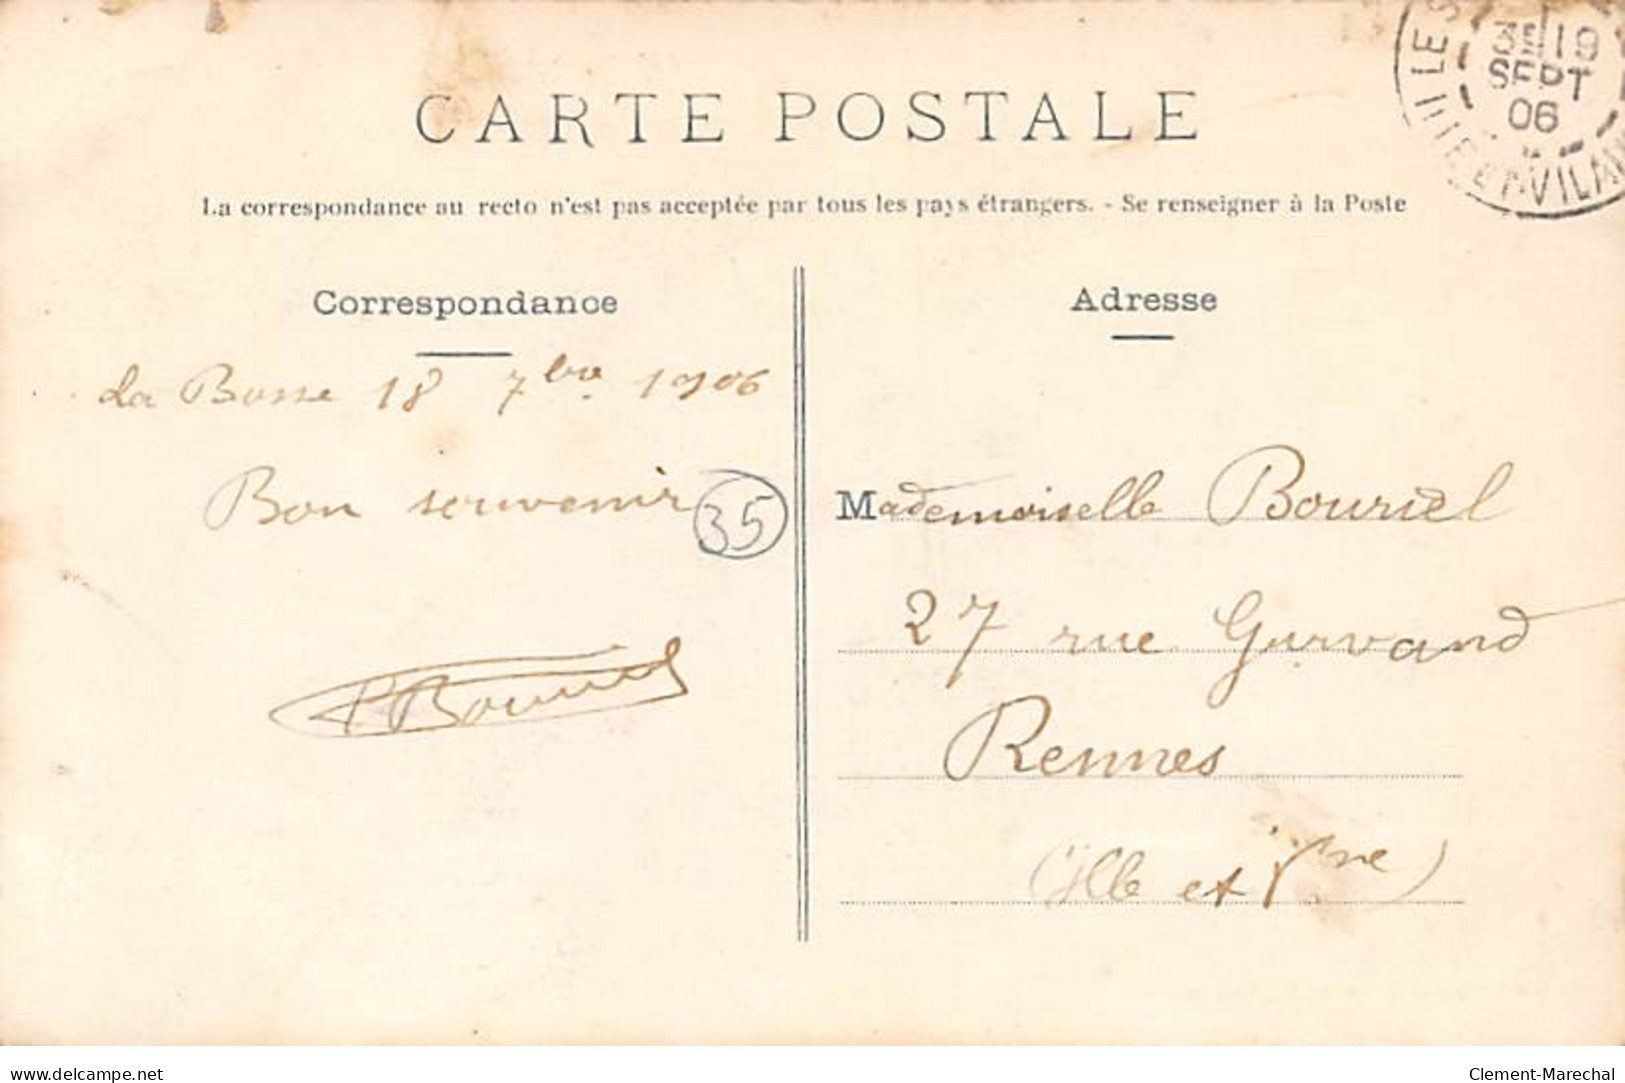 CARTE POSTALE
La correspondance au recto n'est pas acceptée par tous les pays étrangers. - Se renseigner à la Poste
19
SEPT
06
ILLE ET VILAINE
Correspondance
La Bosse 18 7bre 1906
Bon souvenir
35
Adresse
Mademoiselle Bouriel
27 rue Gurvand
Rennes
(Ille et Vne)
www.delcampe.net
Clement-Marechal